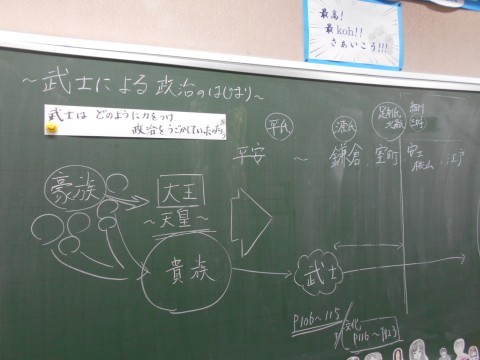 最高!
最koh!!
さぁいこう!!!
～武士による政治のはじまり～
武士は どのように力をつけ
政治をうごかしていったのか
平氏
源氏
足利氏
平安 ～ 鎌倉、室町
安土
桃山
江戸
豪族
大王
～天皇～
貴族
武士
P106～115
文化
P116～P123